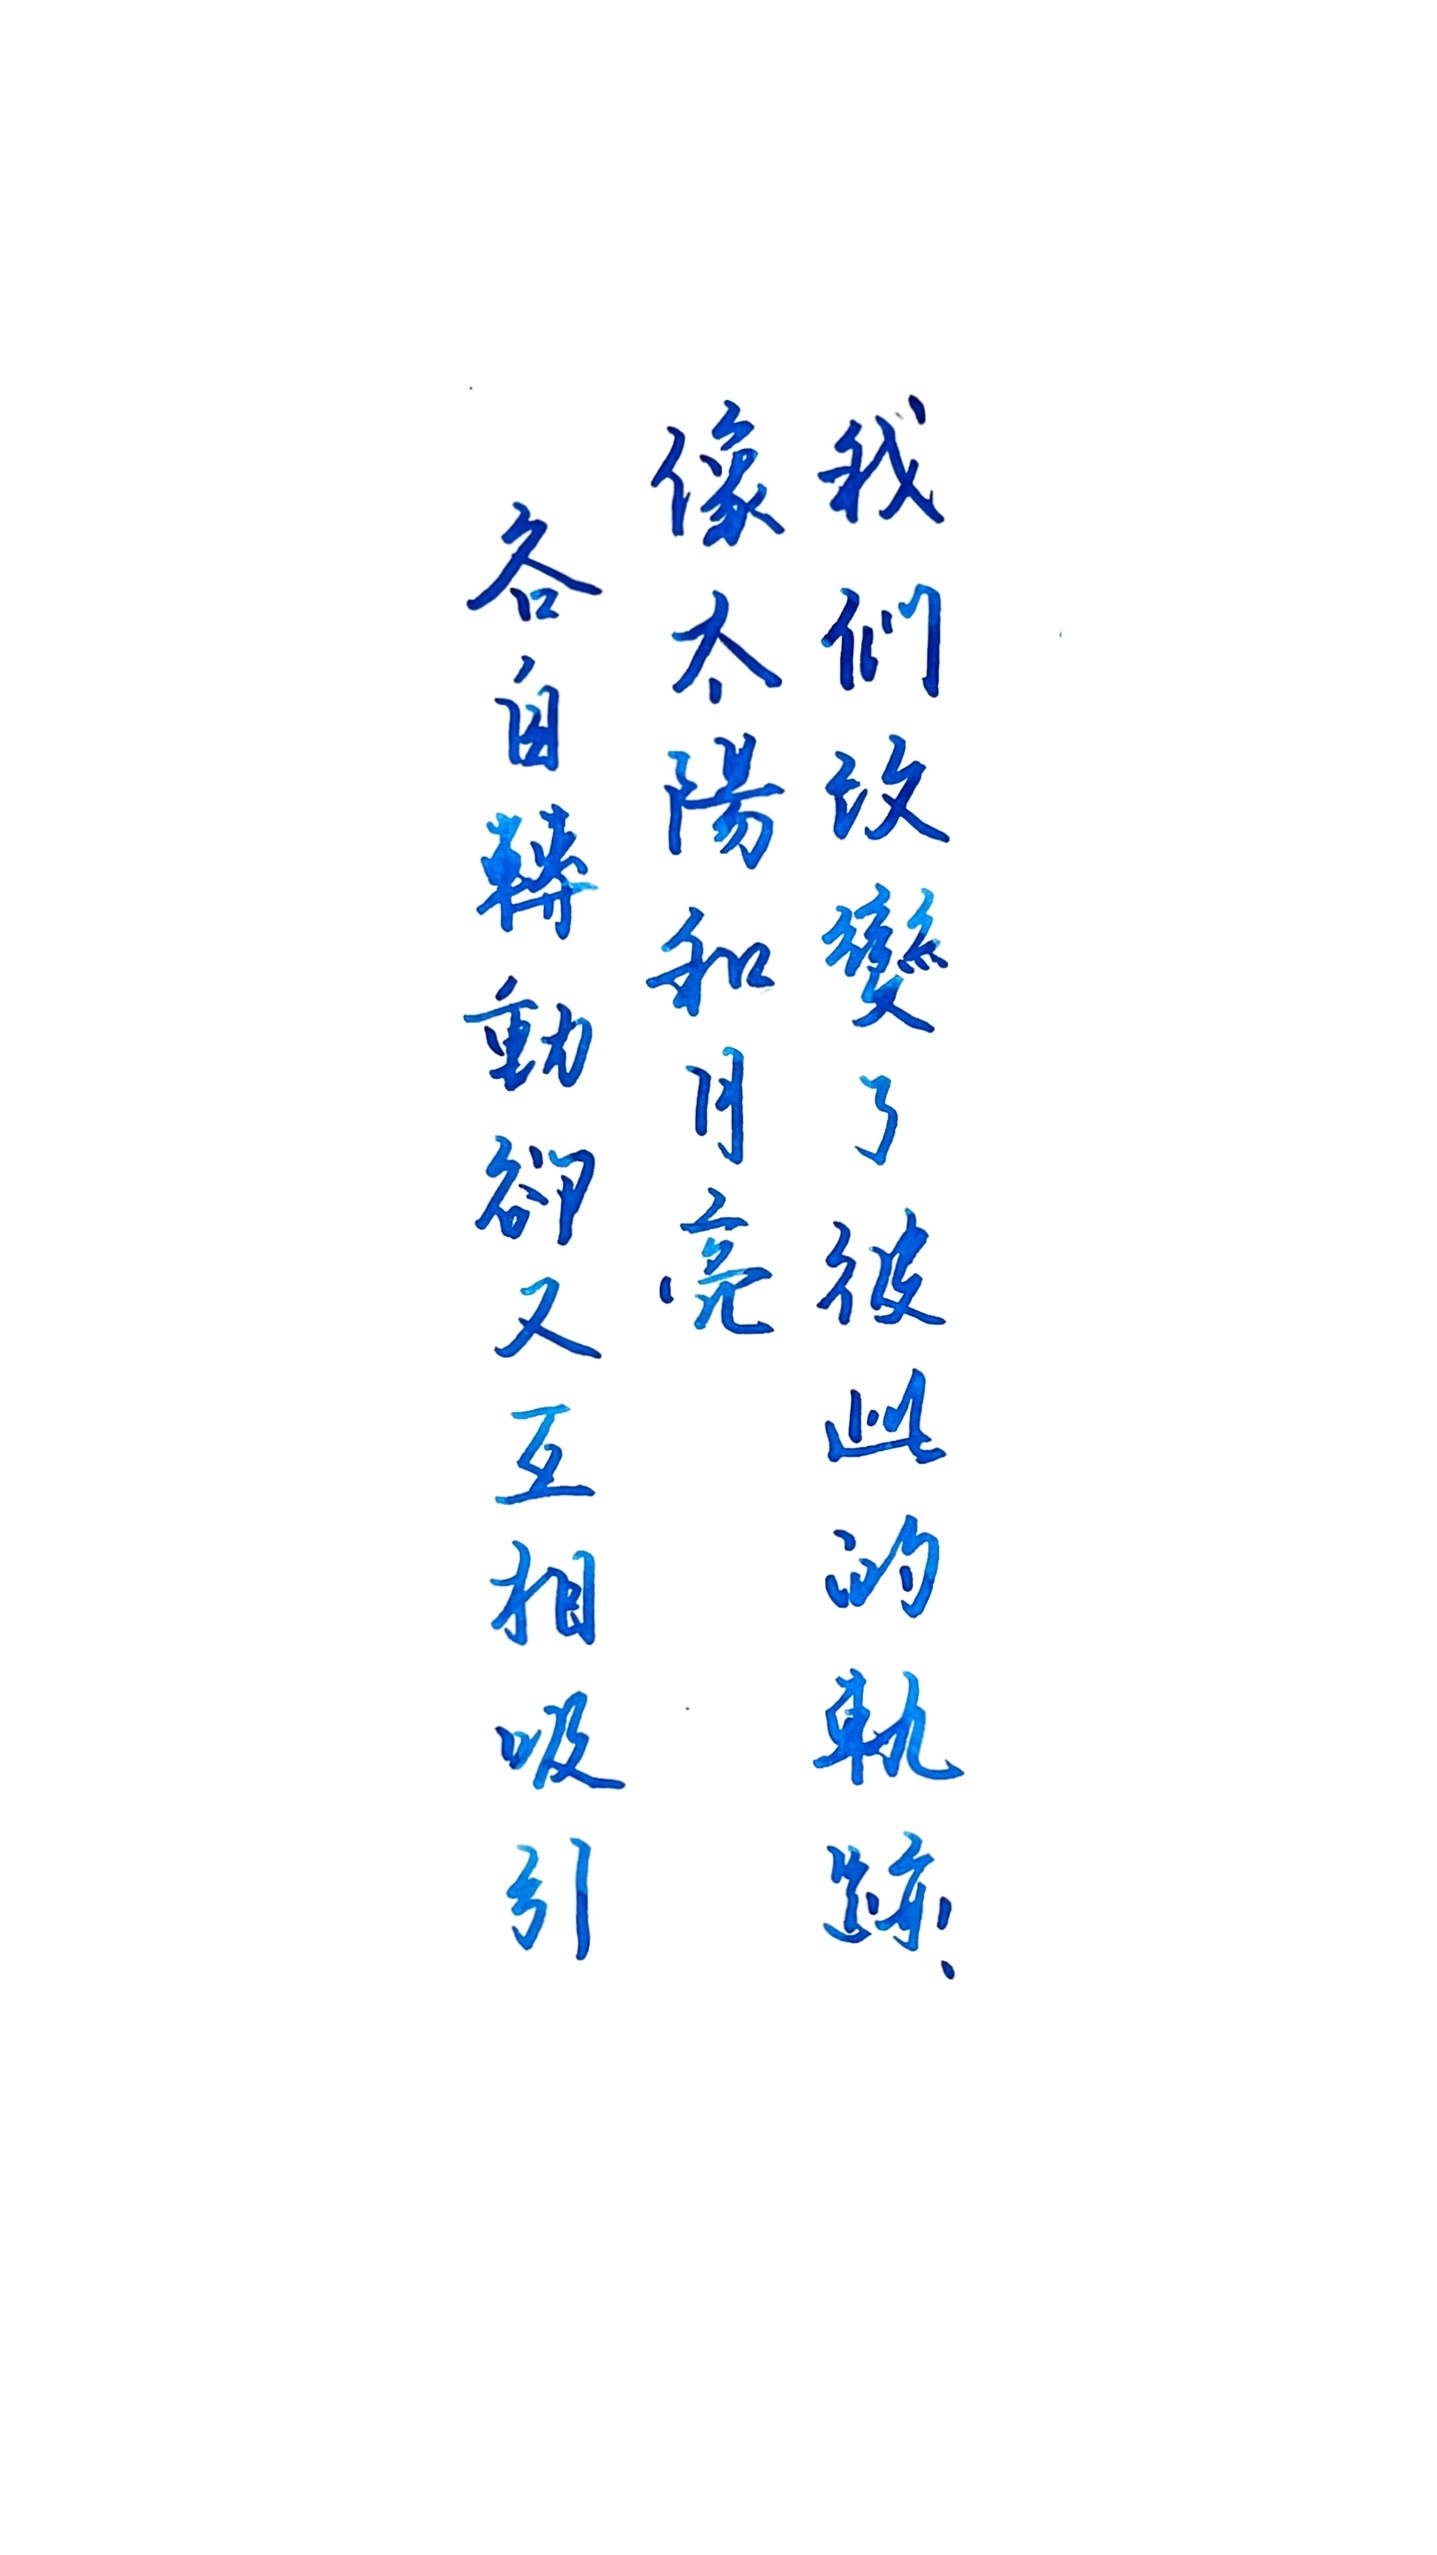 我們改變了彼此的軌跡、
像太陽和月亮
各自轉動卻又互相吸引